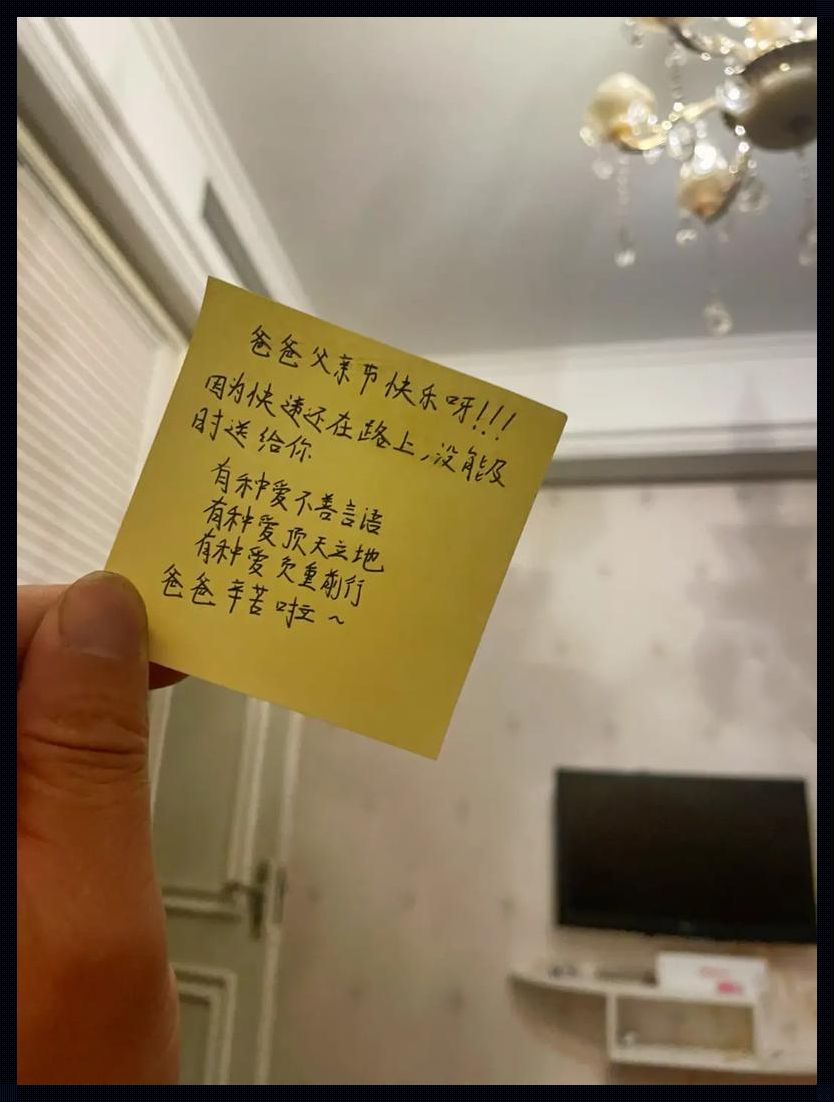 爸爸父亲节快乐呀!!!
因为快递还在路上,没能及
时送给你
有种爱不善言语
有种爱顶天立地
有种爱负重前行
爸爸辛苦啦~